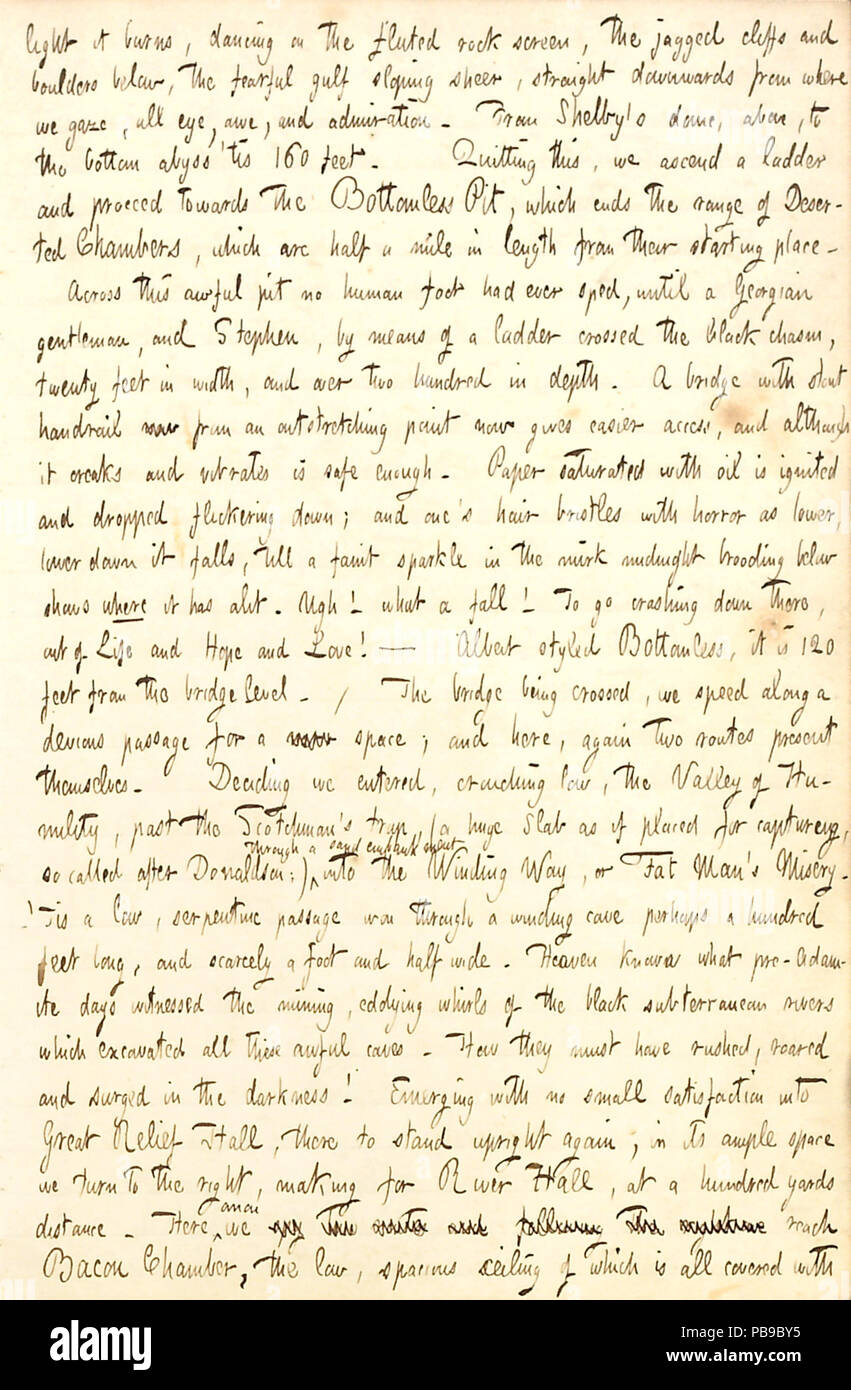 light it burns, dancing on the fluted rock screen, the jagged cliffs and
boulders below, the fearful gulf sloping sheer, straight downwards from where
we gaze, all eye, awe, and admiration. From Shelby's dome, above, to
the bottom abyss 'tis 160 feet. Quitting this, we ascend a ladder
and proceed towards the Bottomless Pit, which ends the range of Deser-
ted Chambers, which are half a mile in length from their starting place.
Across this awful pit no human foot had ever sped, until a Georgian
gentleman, and Stephen, by means of a ladder crossed the black chasm,
twenty feet in width, and over two hundred in depth. A bridge with stout
handrail from an outstretching point now gives easier access, and although
it creaks and vibrates is safe enough. Paper saturated with oil is ignited
and dropped flickering down; and one's hair bristles with horror as lower,
lower down it falls, till a faint sparkle in the mirk midnight brooding below
shows where it has alit. Ugh! what a fall! To go crashing down there,
out of Life and Hope and Love! — Albeit styled Bottomless, it is 120
feet from the bridge level. / The bridge being crossed, we speed along a
devious passage for a space; and here, again two routes present
themselves. Deciding we entered, crouching low, the Valley of Hu-
mility, past the Scotchman's trap, (a huge slab as if placed for capturing,
through a sand embankment
so called after Donaldson;) into the Winding Way, or Fat Man's Misery.
'Tis a low, serpentine passage won through a winding cave perhaps a hundred
feet long, and scarcely a foot and half wide. Heaven knows what pre-Adam-
ite days witnessed the mining, eddying whirls of the black subterranean rivers
which excavated all these awful caves. How they must have rushed, roared
and surged in the darkness! Emerging with no small satisfaction into
Great Relief Hall, there to stand upright again, in its ample space
we turn to the right, making for River Hall, at a hundred yards
anon
distance. Here, we reach
Bacon Chamber, the low, spacious ceiling of which is all covered with
alamy
Image ID: PB9BY5
www.alamy.com